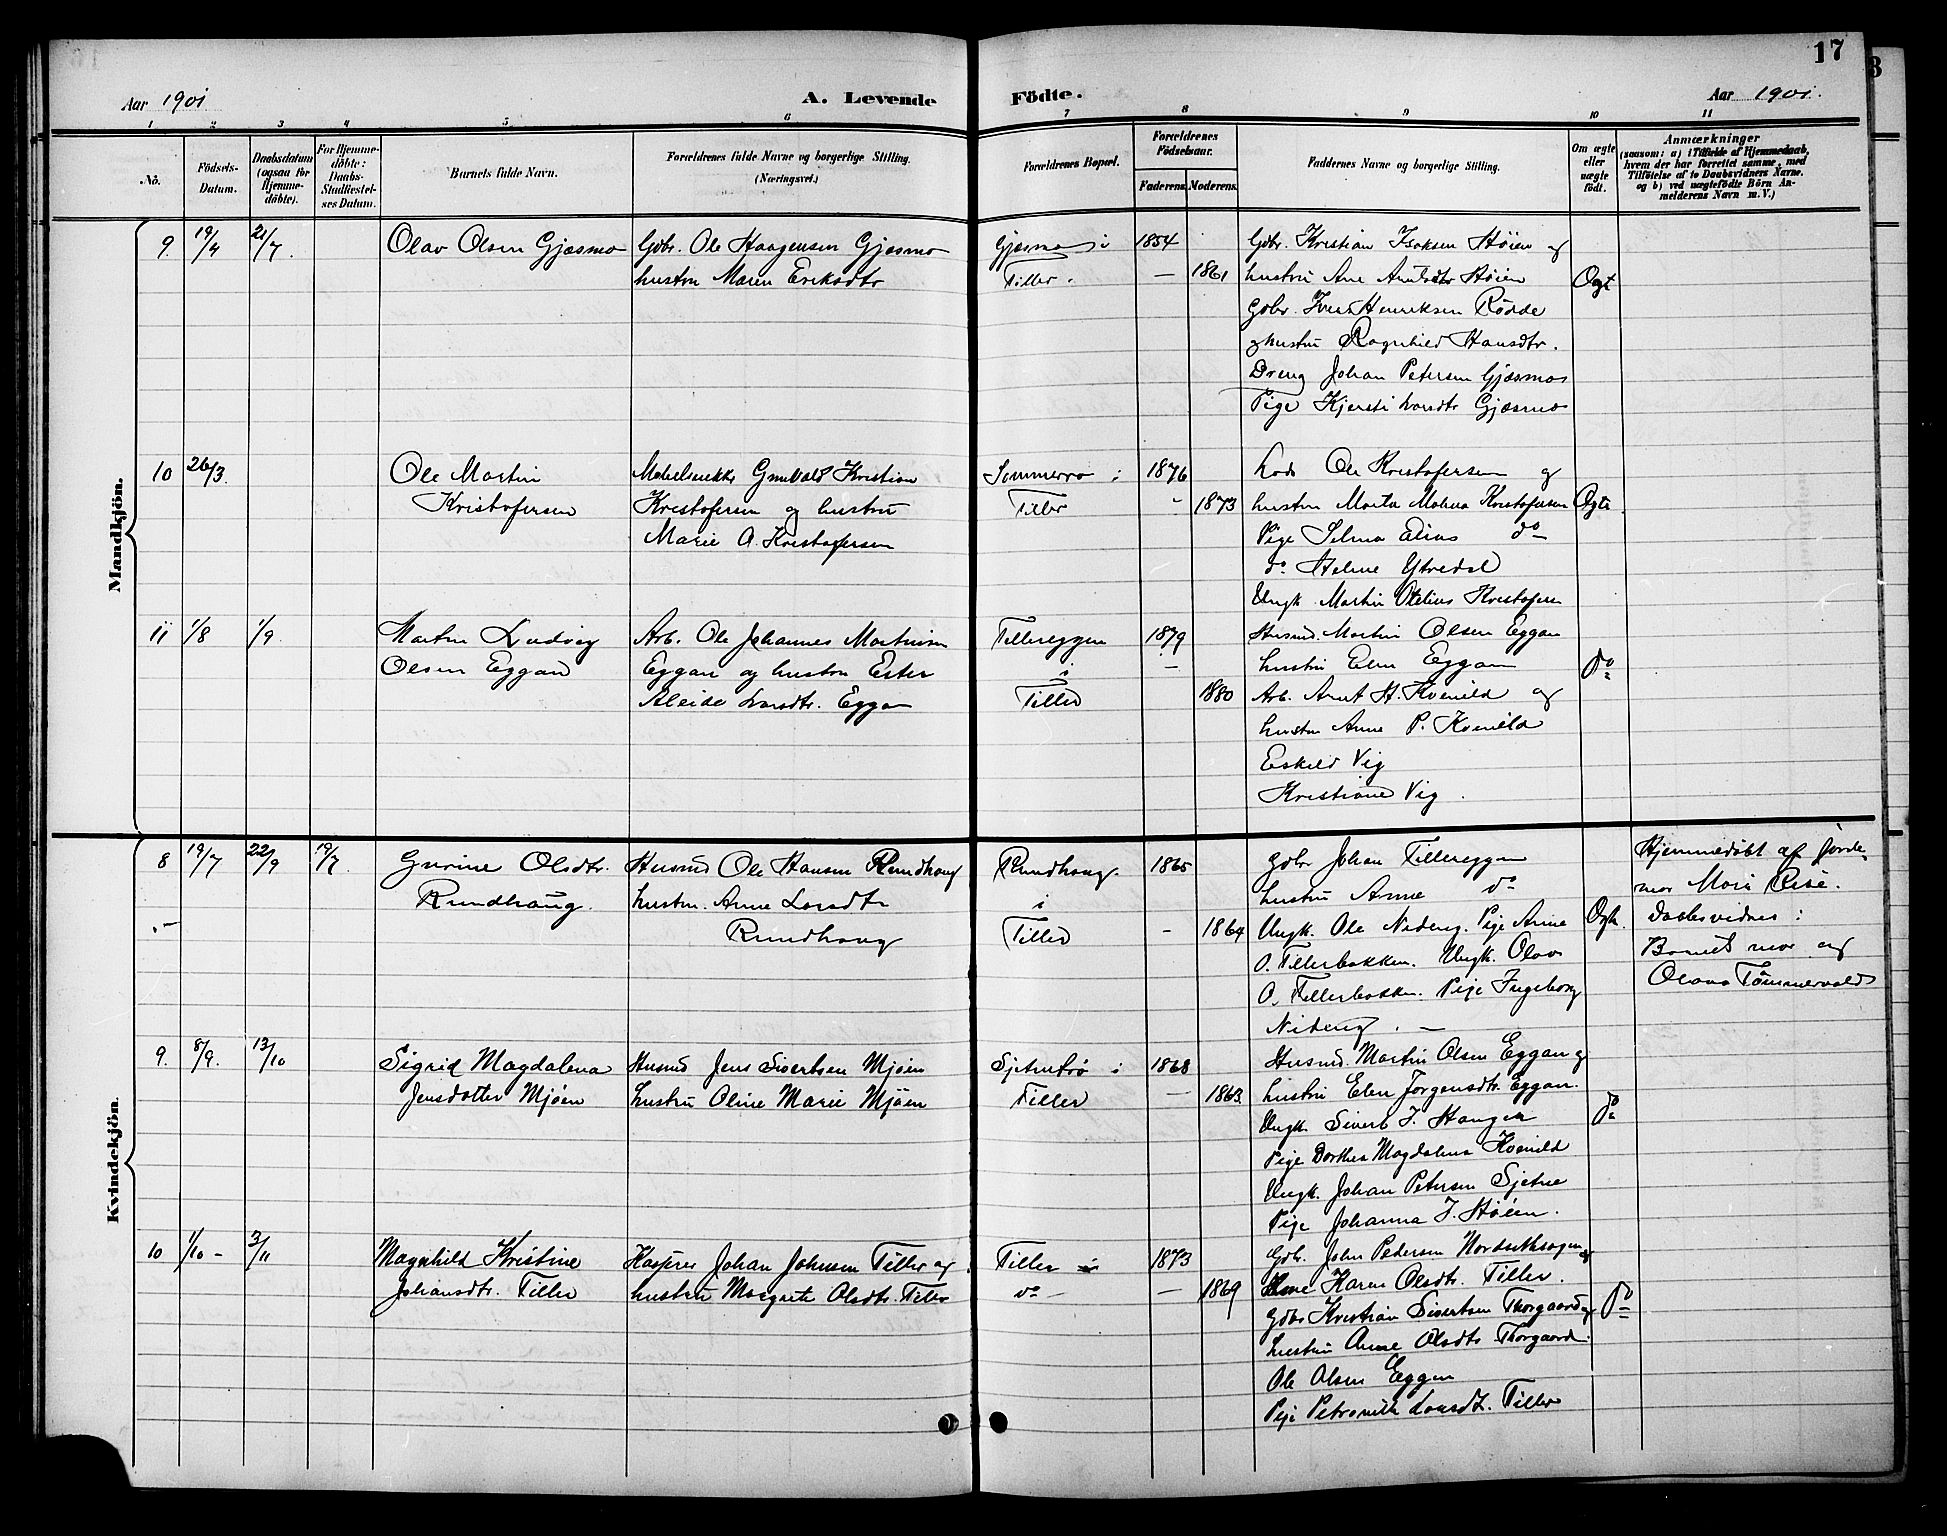 17
Aar 1901
A. Levende
Födte.
Aar 1901.
1
2
3
4
5
6
7
8
9
10
11
No.
Födsels-
Datum.
Daabsdatum
(ogsaa for
Hjemme-
döbte).
For Hjemme-
döbte:
Daabs-
Stadfæstel-
ses Datum.
Barnets fulde Navn.
Forældrenes fulde Navne og borgerlige Stilling.
(Næringsvei.)
Forældrenes Bopæl.
Forældrenes
Födselsaar.
Faderens.
Moderens.
Faddernes Navne og borgerlige Stilling.
Om ægte
eller
uægte
födt.
Anmærkninger
(saasom: a) i Tilfælde af Hjemmedaab,
hvem der har forrettet samme, med
Tilföielse af to Daabsvidners Navne.
og b) ved uægtefödte Börn An-
melderens Navn m. V.)
Mandkjön.
9. 19/4 21/7. Olav Olsen Gjæsmo
Gdbr. Ole Haagensen Gjæsmo
hustru Maren Eriksdtr
Gjæsmo i
Tiller.
1854
— 1861
Gdbr. Kristian Isaksen Støien og
hustru Ane Arntsdtr Støien
Gdbr. Iver Henriksen Rødde
og hustru Ragnhild Hansdtr.
Dreng Johan Petersen Gjæsmo
Pige Kjersti Larsdtr Gjæsmo
Ægt
10 26/3. Ole Martin
Kristofersen
Kristian
Kristofersen og hustru
Marie A. Kristofersen
Sommerro i
Tiller
1876
- 1873
Ole Kristofersen og
hustru Marta Kristofersen
Pige Selma do
do
Ungk. Martin Kristofersen
Ægte
11 1/8 1/9. Martin Ludvig
Olsen Eggan
Arb. Ole Johannes Martinsen
Eggan og hustru Ester
Larsdtr. Eggan
Tillereggen
i
Tiller
1879
— 1880
Husmd. Martin Olsen Eggan
hustru Elen Eggan
Arb. Arnt H. Kvenild og
hustru Anne P. Kvenild
Eskild Vig
Kristiane Vig.
do
Kvindekjön.
8 19/7 22/9 19/7. Gurine Olsdtr.
Rundhaug.
Husmd Ole Hansen Rundhaug
hustru. Anne Larsdtr
Rundhaug
Rundhaug.
i
Tiller
1865
- 1864
Gdbr Johan Tillereggen
hustru Anne do
Ungk. Ole Nideng. Pige Anine
O. Tillerbakken. Ungk. Olav
O. Tillerbakken. Pige Ingeborg
Nideng. —
Ægte.
Hjemmedöbt af jorde-
mor Risè.
Daabsvidner:
Barnets mor og
Olava Tømmervold
9. 8/9. 13/10 Sigrid Magdalena
Jensdatter Mjøen
Husmd Jens Sivertsen Mjøen
hustru Oline Marie Mjøen
i
Tiller
1868
— 1863.
Husmd. Martin Olsen Eggan og
hustru Elen Jørgensdtr. Eggan.
Ungk. Sivert J. Haugen
Pige Dorthea Magdalena Kvenild
Ungk. Johan Petersen Sjetne
Pige Johanna J. Støien.
do
10 1/10 - 3/11 Magnhild Kristine
Johansdtr. Tiller
Johan Johnsen Tiller og
hustru Margrete Olsdtr. Tiller
Tiller i
do —
1873
— 1869
Gdbr. John Pedersen
Karen Olsdtr. Tiller.
Gdbr Kristian Sivertsen Thorgaard og
hustru Anne Olsdtr Thorgaard.
Ole Olsen Eggen
Pige Larsdt. Tiller
do